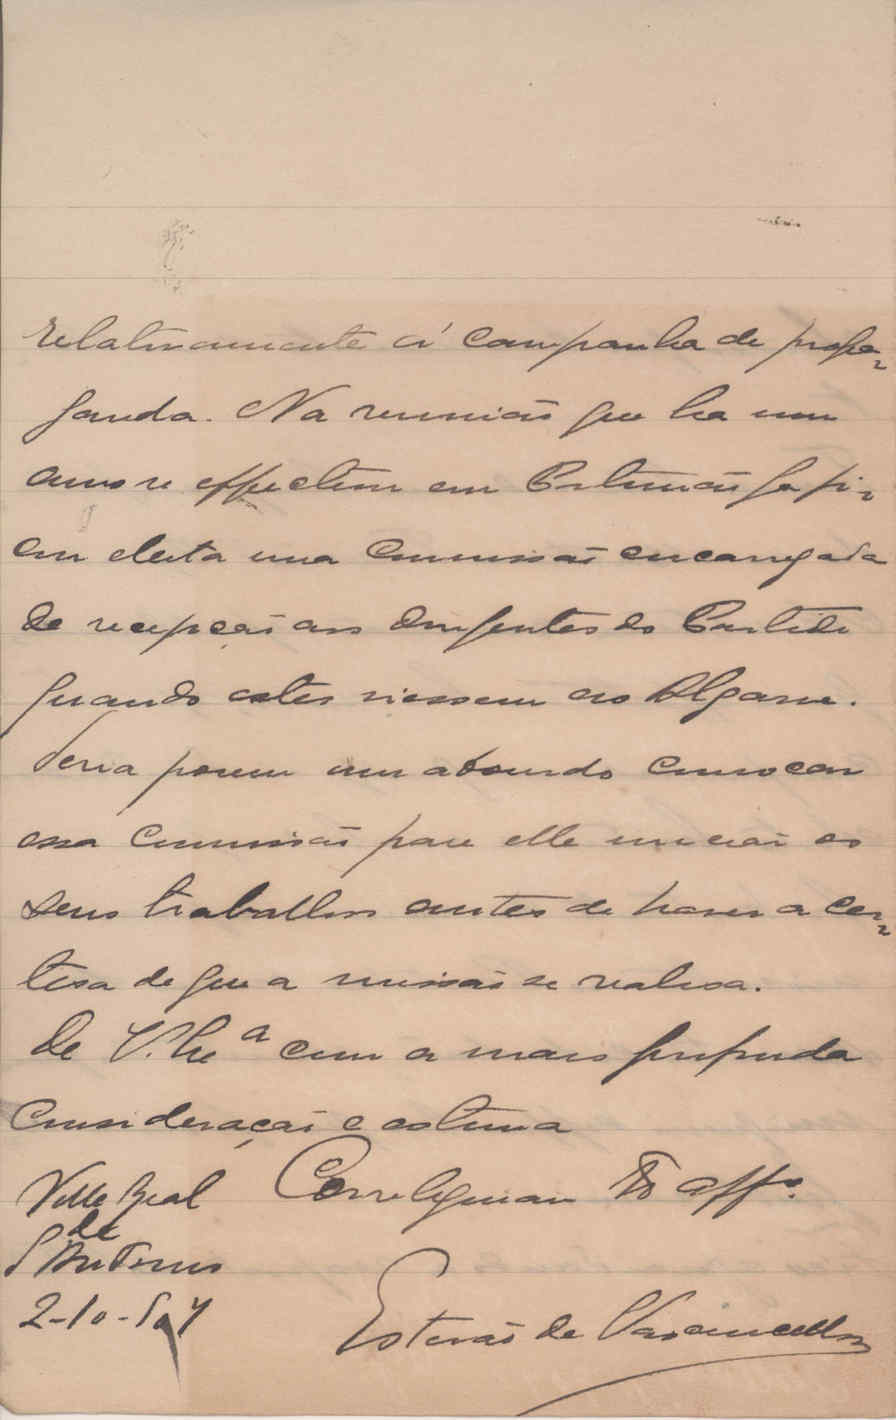 relativamente á campanha de propa-
ganda. Na reunião que ha um
anno se effectuou em Portimão já fi-
cou eleita uma commissão encarregada
de recepção aos dirigentes do Partido
quando estes viessem ao Algarve.
Seria porem um absurdo convocar
essa commissão para elle iniciar os
seus trabalhos antes de haver a cer-
tesa de que a missão se realisa.
De V. Exª com a mais profunda
consideração e estima
Correligionario Atto affº.
Villa Real
de
S Antonio
2-10-907
Estevão de Vasconcellos